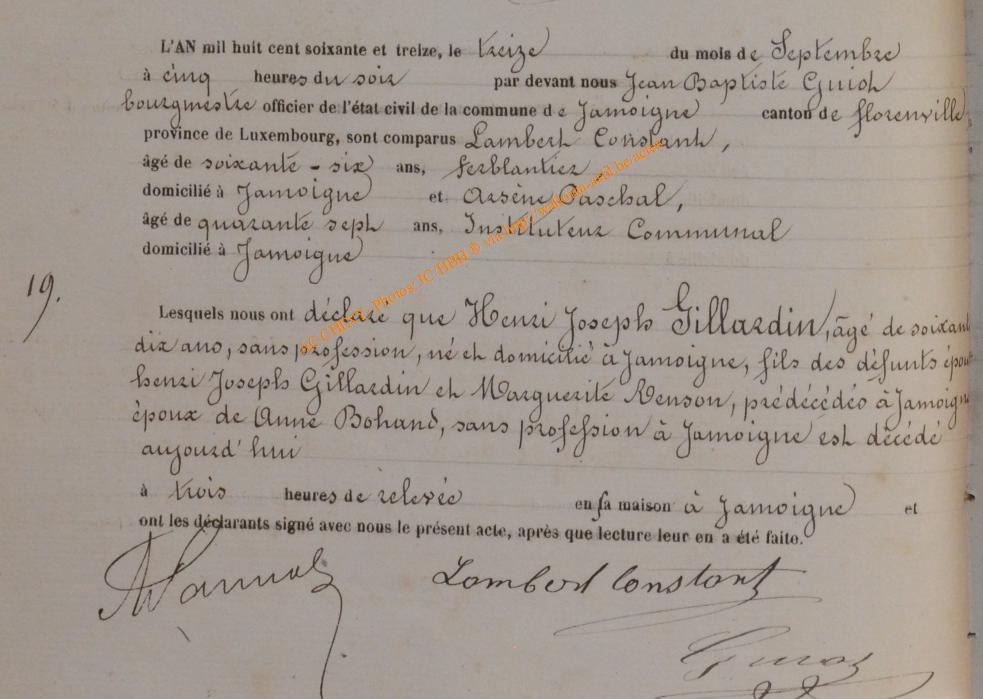 L'AN mil huit cent soixante et treize, le treize du mois de Septembre
à cinq heures du soir par devant nous Jean Baptiste Guiot
bourgmestre officier de l'état civil de la commune de Jamoigne canton de florenville
province de Luxembourg, sont comparus Lambert Constant,
âgé de soixante-six ans, ferblantier
domicilié à Jamoigne et Arsène Paschal,
âgé de quarante sept ans, Instituteur Communal
domicilié à Jamoigne
19.
Lesquels nous ont déclaré que Henri Joseph Gillardin, âgé de soixant
dix ans, sans profession, né et domicilié à Jamoigne, fils des défunts épou
henri Joseph Gillardin et Marguerite Renson, prédécédés à Jamoign
époux de Anne Bohand, sans profession à Jamoigne est décédé
aujourd'hui
à trois heures de relevée en sa maison à Jamoigne et
ont les déclarants signé avec nous le présent acte, après que lecture leur en a été faite.
Lambert Constant
Guiot